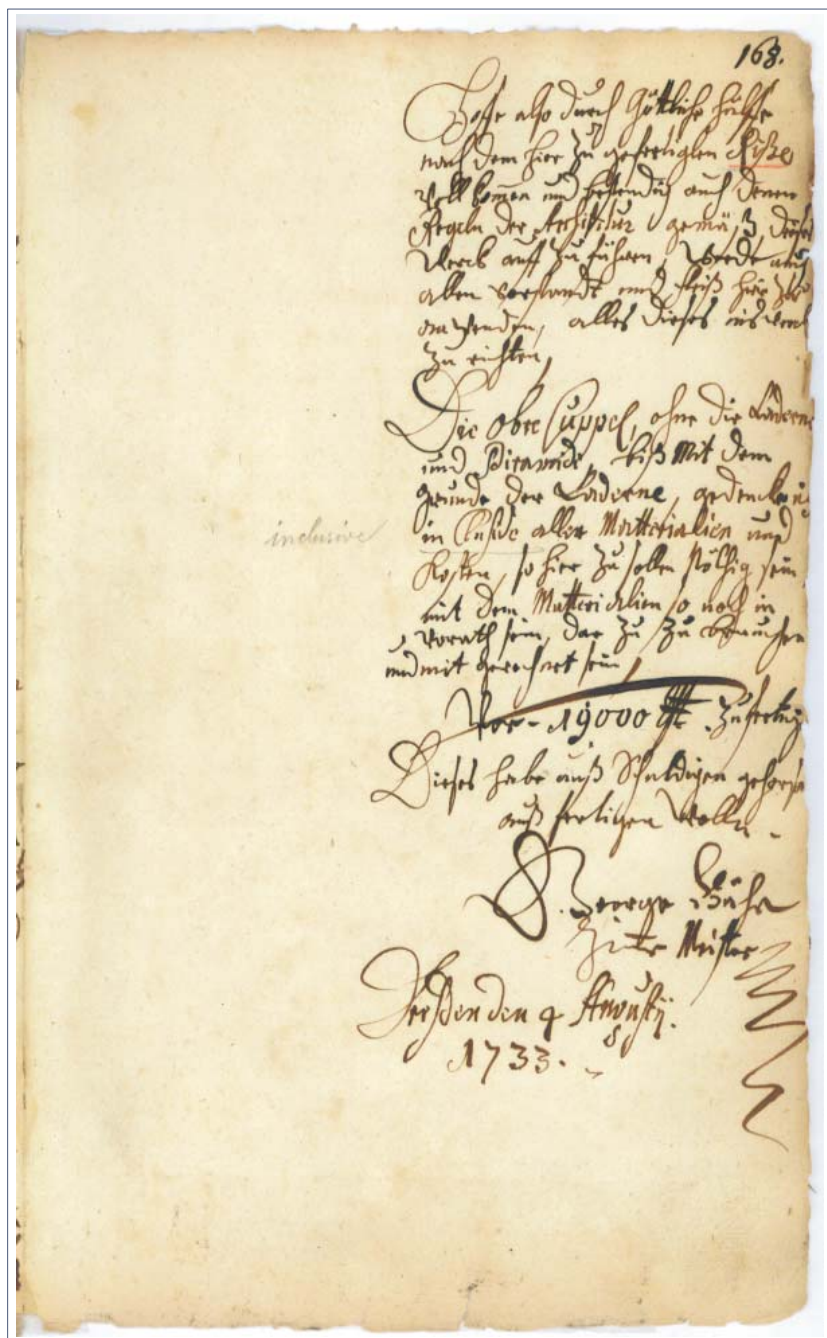 168.
Hoffe also durch Göttliche Hülffe
nach dem hier zu gefertigten Riße
vollkommen und bestendig auch denen
Regeln der Architectur gemäß dieses
Werck auff zu führen, Werde auch
allen Verstandt und fleiß hier zu
anwenden, alles dieses ins Werck
zu richten,
Die obre Cuppel, ohne die Laderne
und Piramide, biß Mit dem
grunde der Laderne, gedencke ich
inclusive
in Clusive aller Matterialien und
Kosten, so hier zu sollen Nöthig sein
mit dem Matterialien so noch in
Vorath sein, dar zu zu brauchen
und mit gerechnet sein,
Vor - 19000 zu fertig
Dieses habe auß Schuldigen gehorsam
auß fertigen Wolln -
George Bähr
Zimmer Meister
Dreßden den 9 Augustij.
1733. -